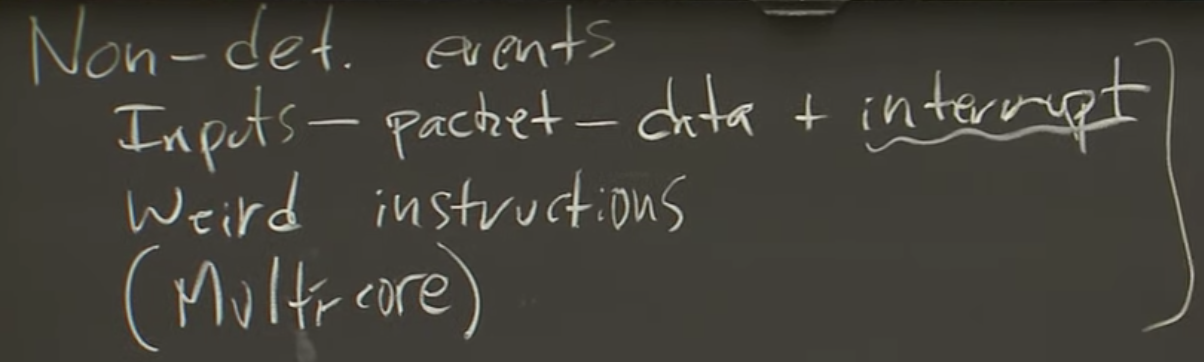 Non-det. events
Inputs - packet - data + interrupt
Weird instructions
(Multi-core)